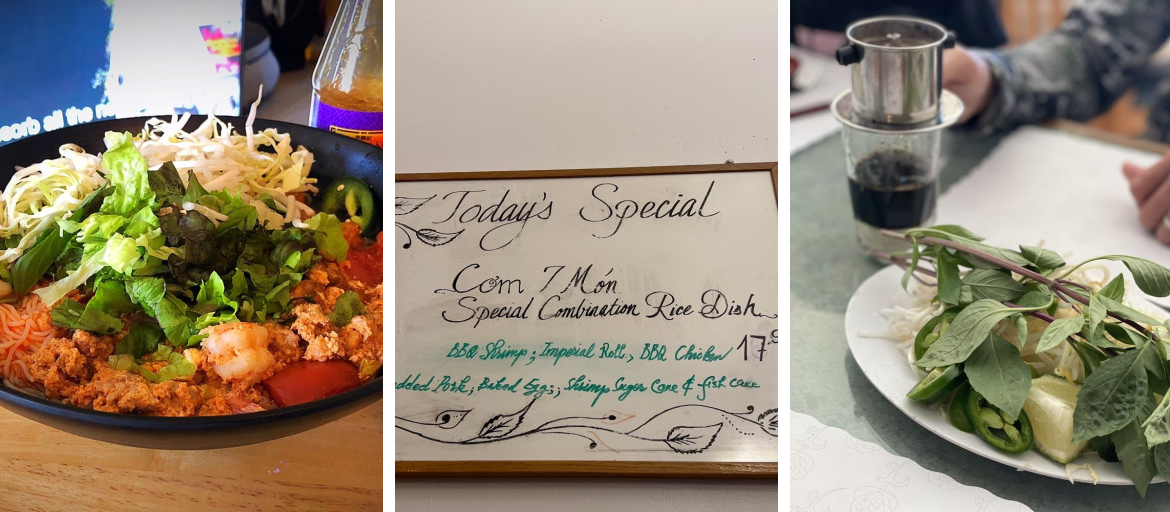 all the
Today's Special
Cơm 7 Món
Special Combination Rice Dish
BBQ Shrimp, Imperial Roll, BBQ Chicken 17
Pork, Baked Egg, Shrimp Sugar Cane & fish cake